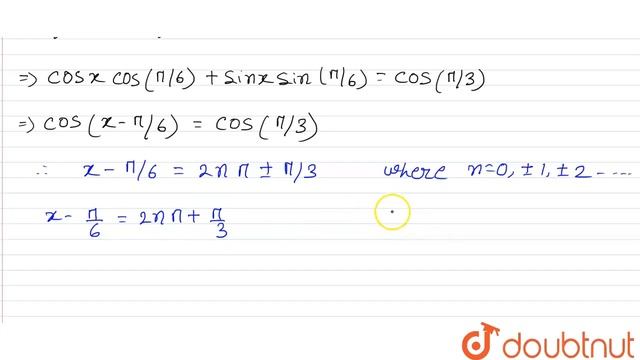 ⇒ cosx cos(π/6) + sinx sin(π/6) = cos(π/3)
⇒ cos(x-π/6) = cos(π/3)
∴ x-π/6 = 2nπ ± π/3 where n=0, ±1, ±2 -....
x - π/6 = 2nπ + π/3
doubtnut